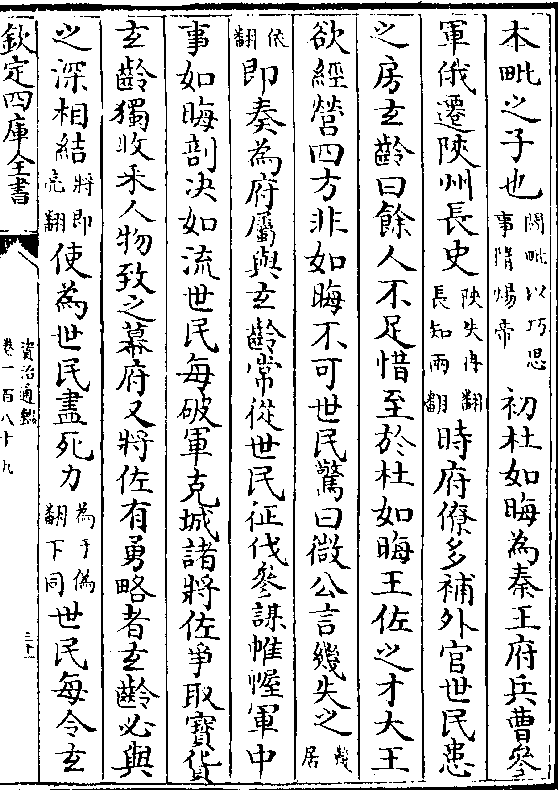 本毗之子也閻毗以巧思事隋煬帝初杜如晦為秦王府兵曹參
軍俄遷陜州長史陜失冉翻長知兩翻時府僚多補外官世民患
之房玄齡曰餘人不足惜至於杜如晦王佐之才大王
欲經營四方非如晦不可世民驚曰微公言幾失之幾居
依翻即奏為府屬與玄齡常從世民征伐參謀帷幄軍中
事如晦剖决如流世民每破軍克城諸將佐爭取寳貨
玄齡獨收采人物致之幕府又將佐有勇略者玄齡必與
之深相結將即亮翻使為世民盡死力為于偽翻下同世民每令玄
欽定四庫全書
資治通鑑
卷一百八十九
三十